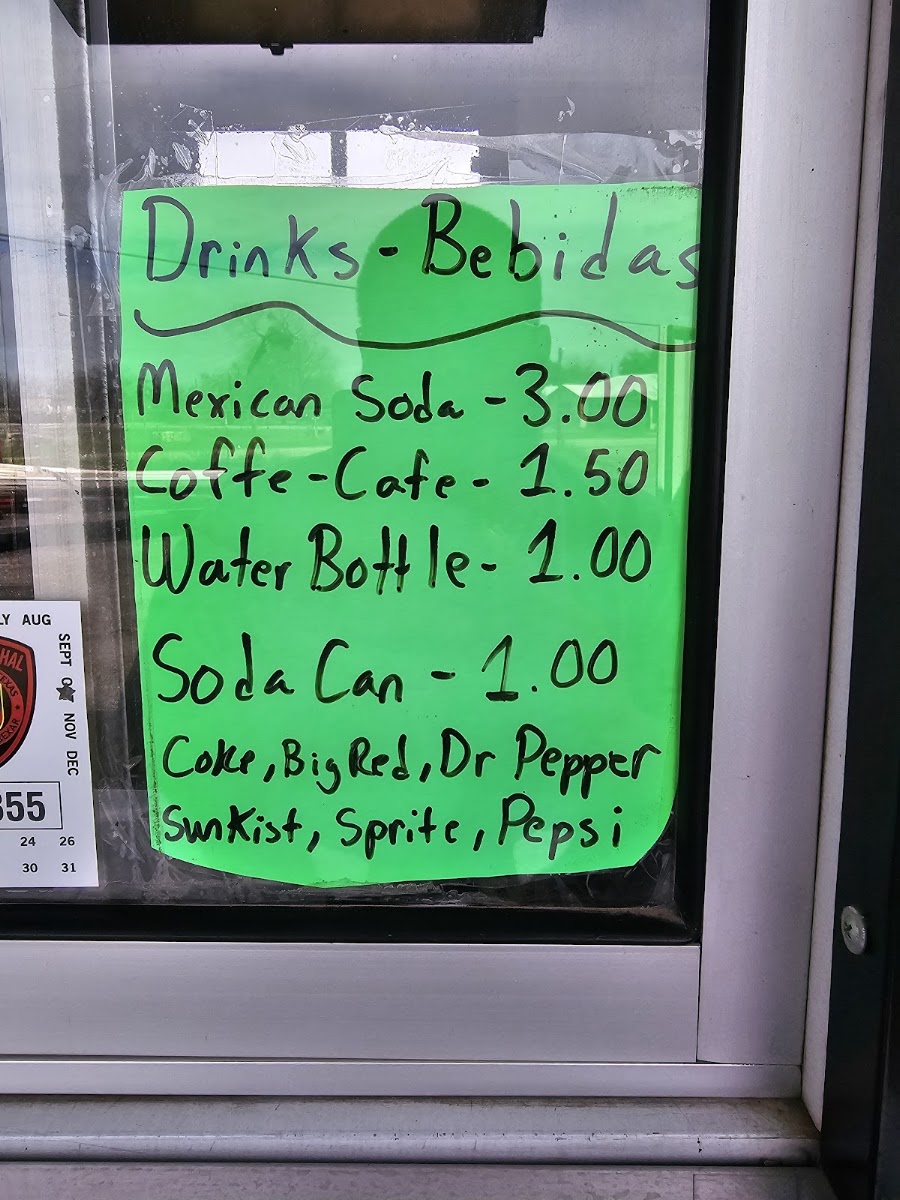 Drinks - Bebidas
Mexican Soda - 3.00
Coffe - Cafe - 1.50
Water Bottle - 1.00
Soda Can - 1.00
Coke, Big Red, Dr Pepper
Sunkist, Sprite, Pepsi
AUG
SEPT
NOV
DEC
TEXAS
355
24 26
30 31